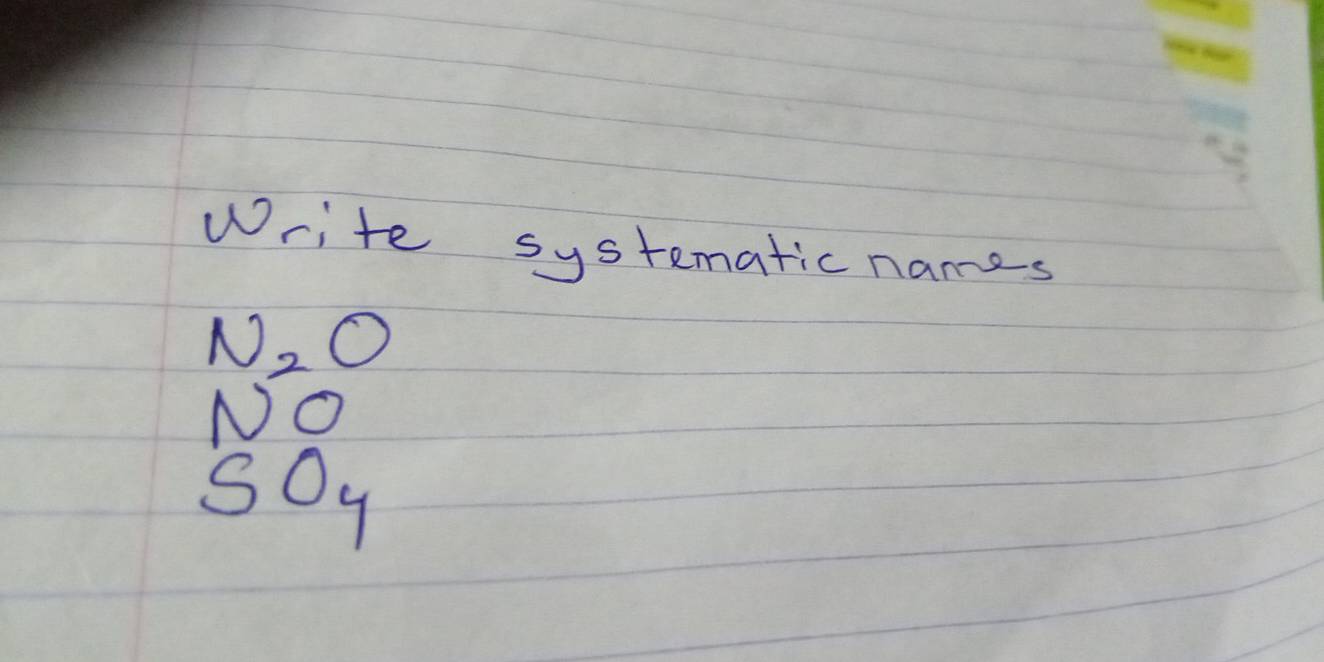 Write systematic names
N₂O
NO
SO₄